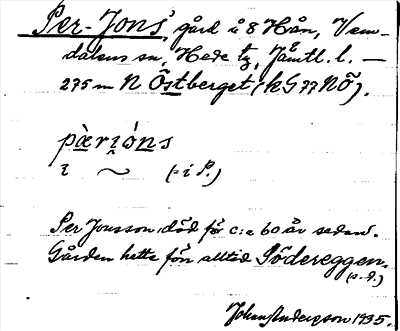 Per-Jons', gård å 8 Hån, Vem-
dalens sn, Hede tg, Jämtl. l. —
275 m N Östberget (kG 77 NÖ).
pæ̀ri̯óns
i ~ (= i P.)
Per Jonsson död för c:a 60 år sedan.
Gården hette förr alltid Södereggen.
(s.d.)
Johan Anderzson 1935.